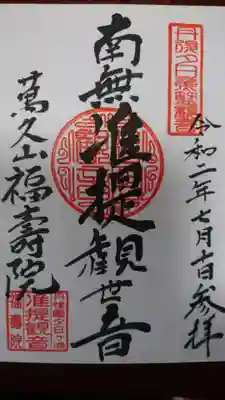 令和二年七月十日参拝
南無准提観世音
萬久山福壽院
准提観音
福壽院